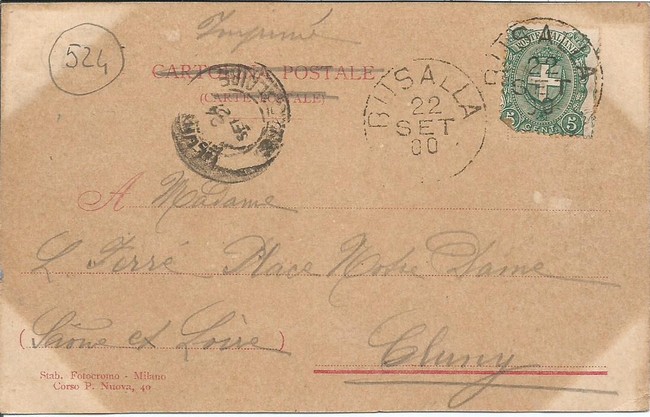 524
Imprimé
CARTOLINA POSTALE
(CARTE POSTALE)
BUSALLA
22
SET
00
POSTE ITALIANE
BUSALLA
22
SET
5 CENT. 5
A Madame
L Ferré Place Notre Dame
(Saône et Loire)
Cluny
Stab. Fotocromo - Milano
Corso P. Nuova, 40